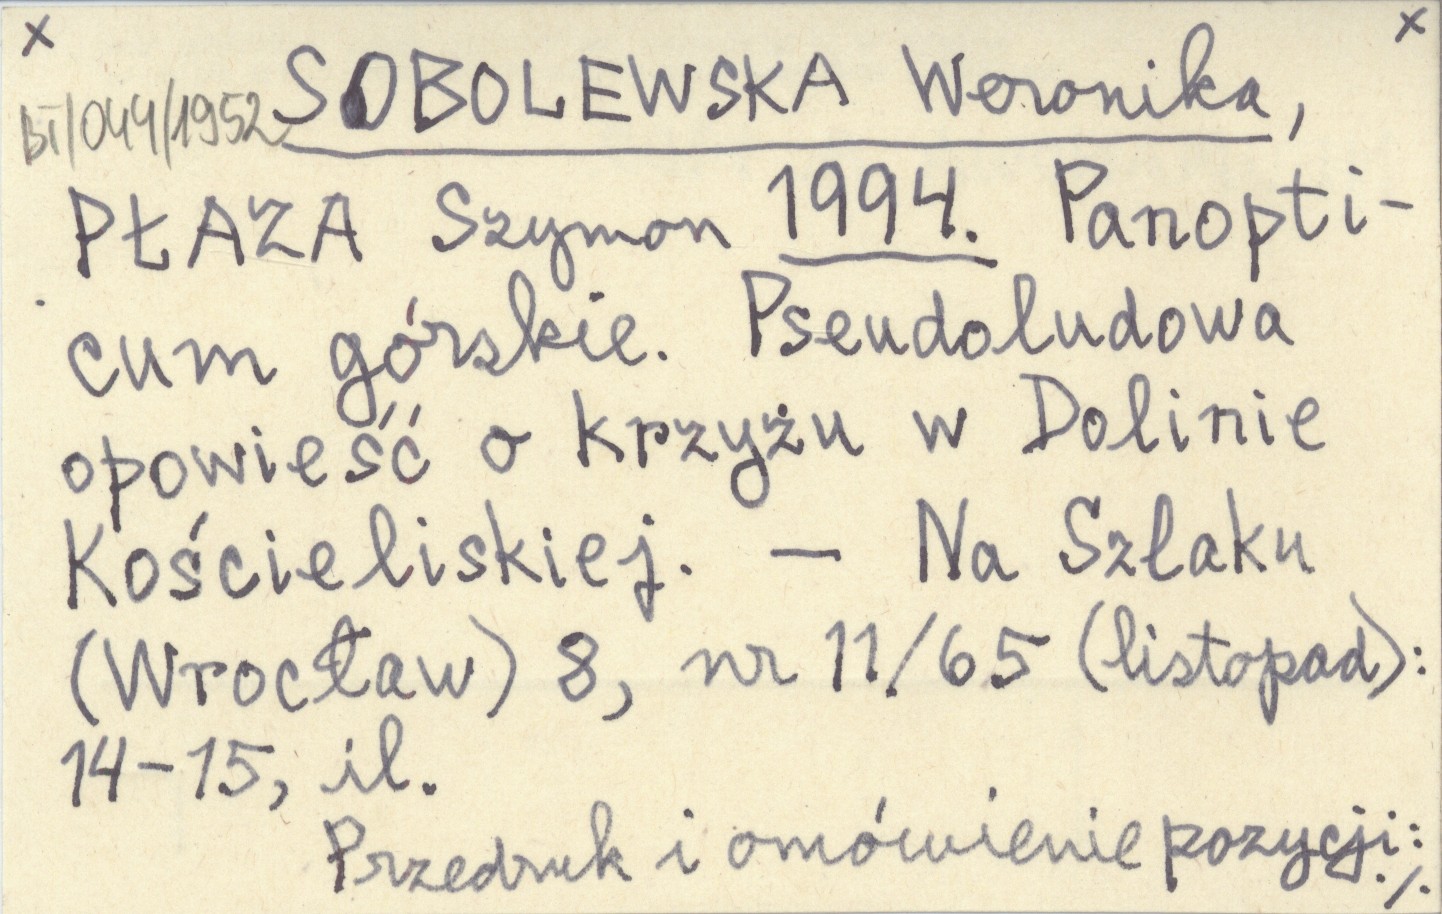 x x
BI/044/1952 SOBOLEWSKA Weronika,
PŁAZA Szymon 1994. Panopti-
cum górskie. Pseudoludowa
opowieść o krzyżu w Dolinie
Kościeliskiej. — Na Szlaku
(Wrocław) 8, nr 11/65 (listopad):
14-15, il.
Przedruk i omówienie pozycji:
./.